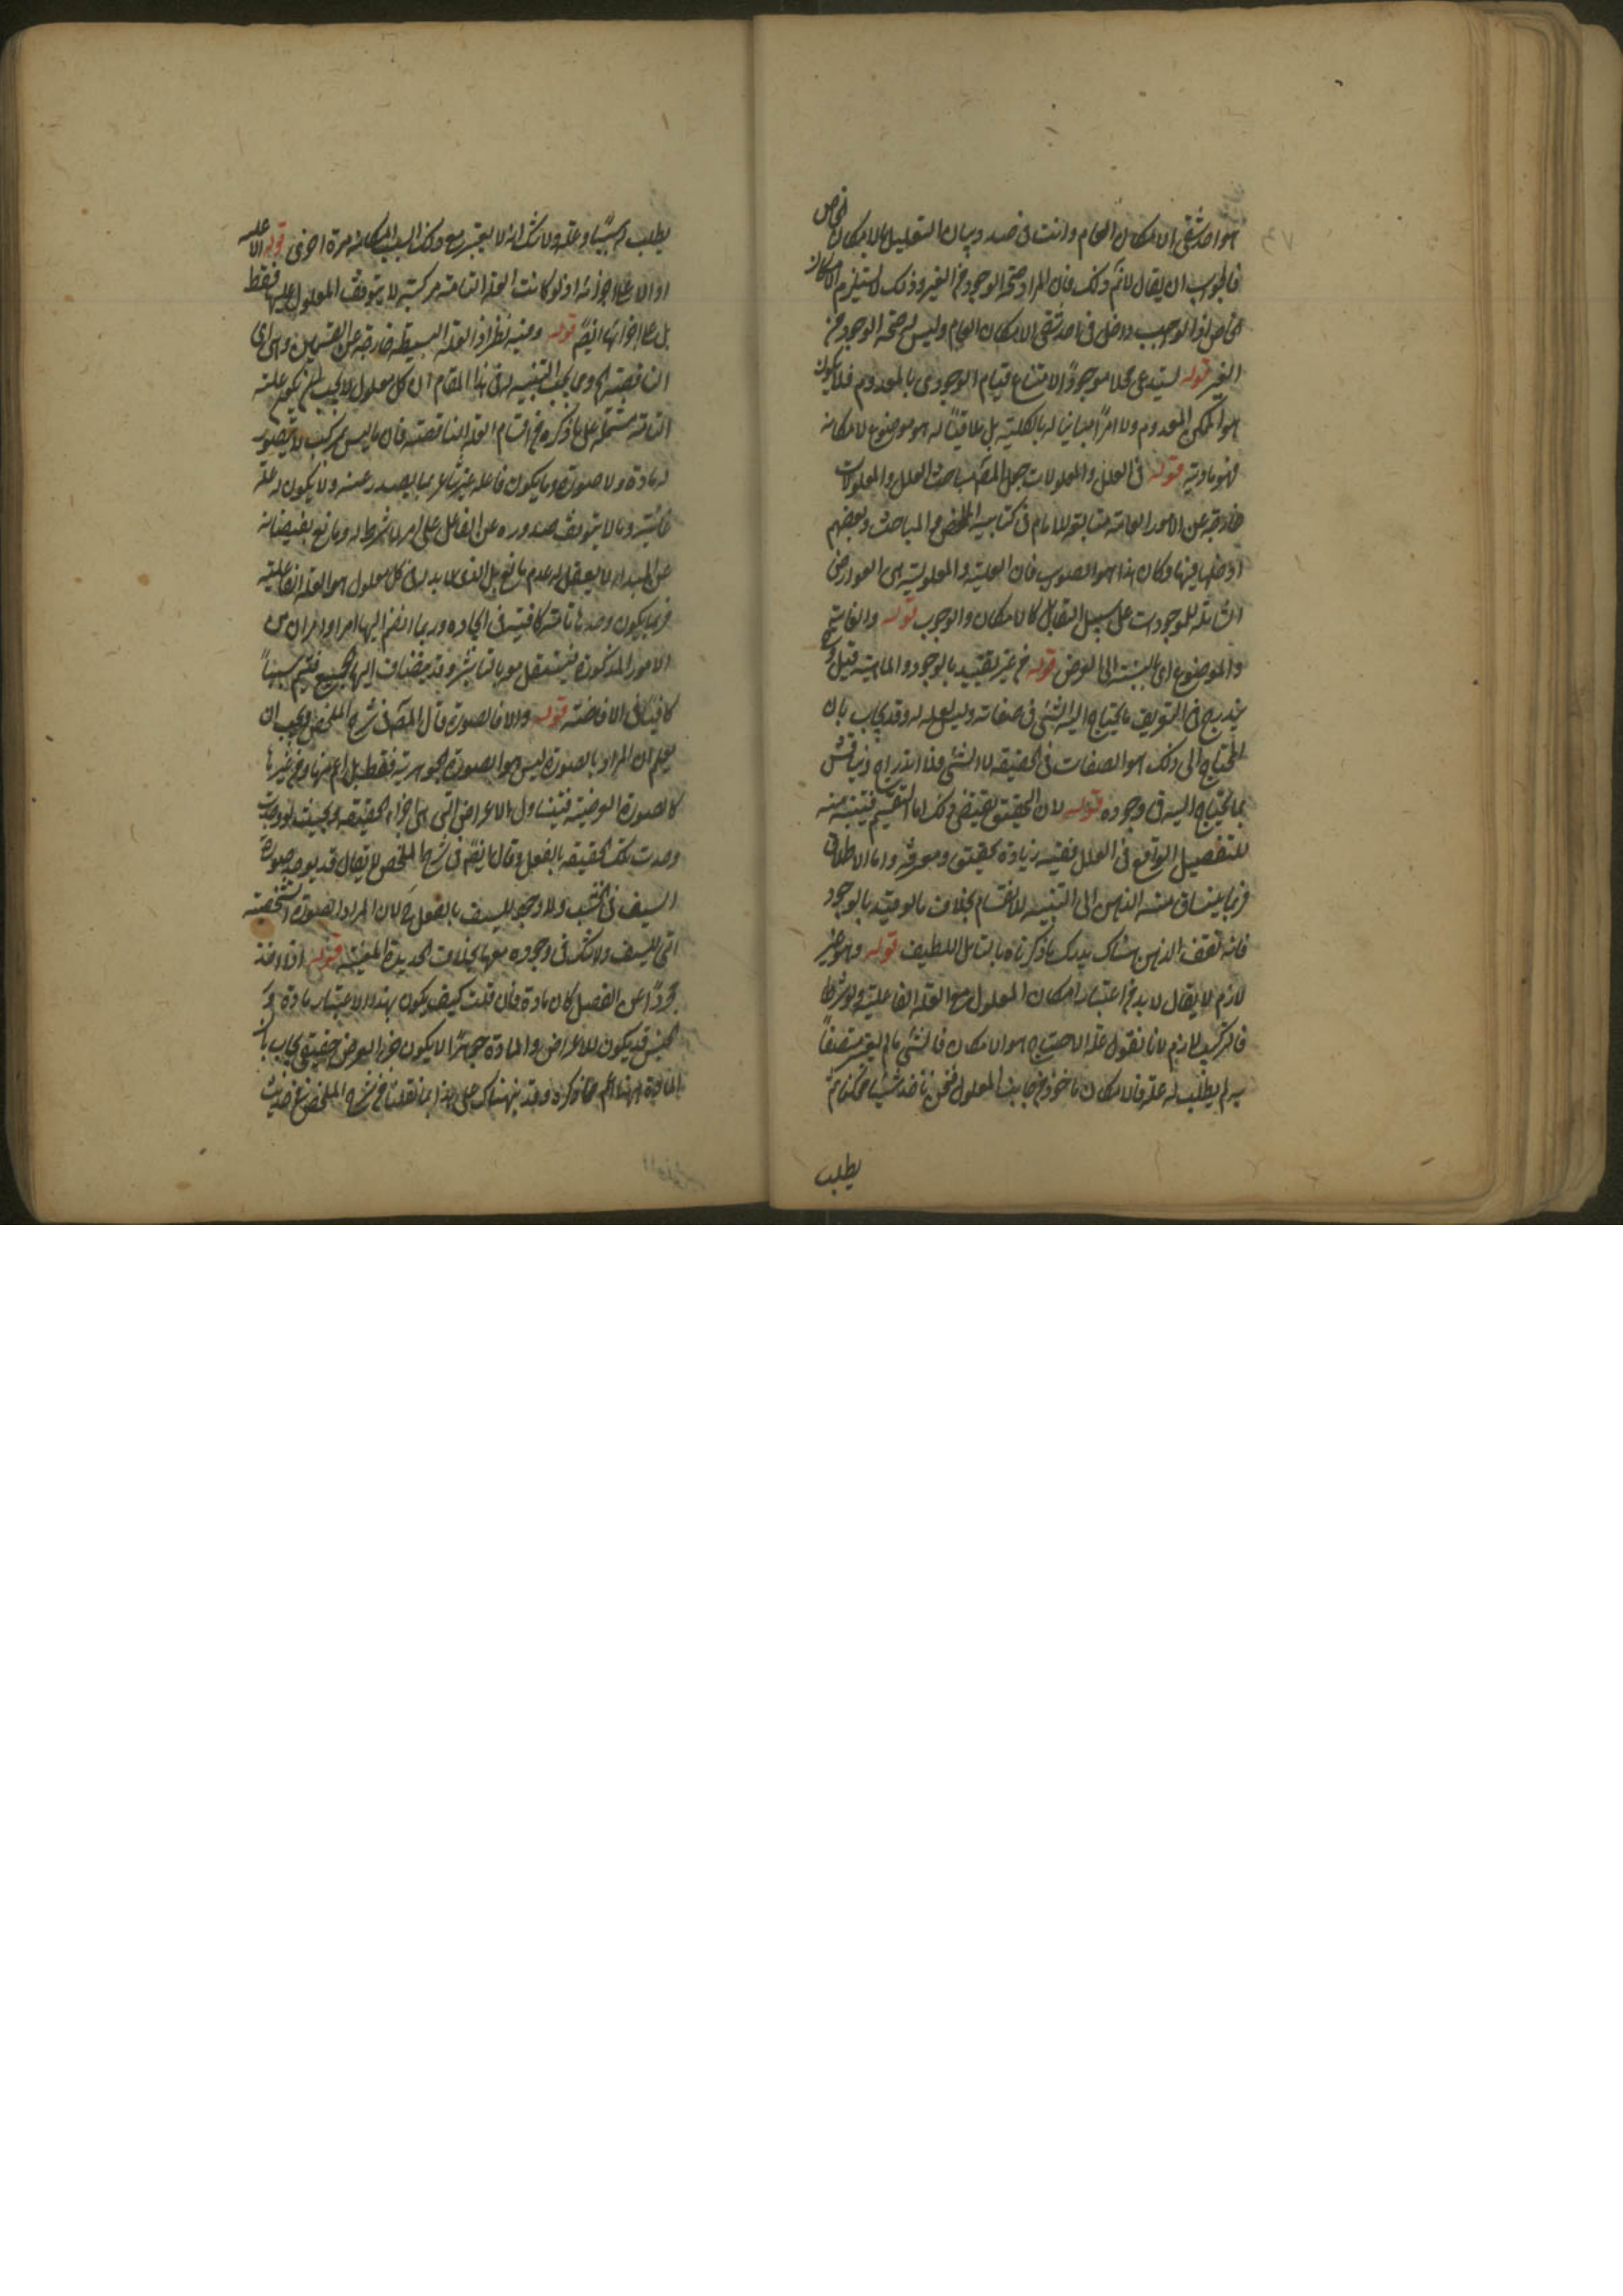 هو احد شقى الامكان العام وانت فى صدد بيان التعليل بالامكان الخاص
فالجواب ان يقال لانم ذلك فان المراد صحة الوجود من الغير وذلك يستلزم الامكان
الخاص اذ الواجب داخل فى احد شقى الامكان العام وليس له صحة الوجود من
الغير قوله يستدعى محلا موجودا لامتناع قيام الوجودى بالمعدوم فلا يكون
هو الممكن المعدوم ولا امرا مباينا له بالكلية بل ملاقيا له هو موضوع لامكانه
فهو مادية قوله فى العلل والمعلولات جعل المصنف مباحث العلل والمعلولات
خارجة عن الامور العامة متابعة للامام فى كتابيه الملخص والمباحث وبعضهم
ادخلها فيها وكان هذا هو الصواب فان العلية والمعلولية من العوارض
الشاملة للموجودات على سبيل التقابل كالامكان والوجوب قوله والغاية
والموضوع اى بالنسبة الى العرض قوله من غير تقييد بالوجود والماهية قيل
يندرج فى التعريف ما يحتاج اليه الشئ فى صفاته وليس علة له وقد يجاب بان
المحتاج الى ذلك هو الصفات فى الحقيقة لا الشئ فلا اندراج
بما يحتاج اليه فى وجوده قوله لان التحقيق يقتضى ذلك اما التقسيم فتنبيه منه
للتفصيل الواقع فى العلل ففيه زيادة تحقيق ومعرفة واما الاطلاق
فربما ينساق منه الذهن الى التنبيه للاقسام بخلاف ما لو قيد بالوجود
فانه تقف الذهن هناك يدلك ما ذكرناه بالتامل اللطيف قوله وهو غير
لازم لا يقال لابد من اعتبار امكان المعلول مع العلة الفاعلية
فالتركيب لازم لانا نقول علة الاحتياج هو الامكان فالشئ ما لم يعتبر متصفا
به لم يطلب له علة فالامكان ماخوذ من جانب المعلول فنحن ناخذ شيئا ممكنا ثم
يطلب
يطلب له سببا وعلة ولا شك انه لا يعتبر مع ذلك السبب امكانه مرة اخرى قوله الا عليه
او الا على اجزائه اذ لو كانت العلة التامة مركبة لا يتوقف المعلول عليها فقط
بل على اجزائها ايضا قوله وفيه نظر اذ العلة البسيطة خارجة عن القسمين
الناقصة ومن يجب التنبيه له فى هذا المقام ان كل معلول لا يجب ان يكون علته
التامة مشتملة على ما ذكره من اقسام العلة الناقصة فان ما ليس بمركب لا يتصور
له مادة ولا صورة وما يكون فاعله غير شاعر بما يصدر عنه ولا يكون له علة
غائية وما لا يتوقف صدوره عن الفاعل على امر لا شرط له ومانع
عن المبدا لا يعقل له عدم مانع بل الذى لابد له فى كل معلول هو العلة الفاعلية
فربما يكون وحدها تامة كافية فى ايجاده وربما انضم اليها امر او امران من
الامور المذكورة فيستقل هو بالتاثير وقد يضاف اليها الجميع فيتم سببا
كافيا فى الافاضة قوله والا فالصورة قال المصنف فى شرح الملخص ويجب ان
يعلم ان المراد بالصورة ليس هو الصورة الجوهرية فقط بل اعم منها ومن غيرها
كالصورة الوضعية فيتناول الاعراض التى هى اجزاء الحقيقة بحيث لو وجدت
وجدت تلك الحقيقة بالفعل وقال ايضا فى شرح الملخص لا يقال قد يوجد صورة
السيف فى الخشب ولا وجود للسيف بالفعل لان المراد الصورة الشخصية
التى للسيف ولا شك فى وجوده معها بخلاف الحديدة المعينة قوله اذا اخذ
مجردا عن الفصل كان مادة فان قلت كيف يكون بهذا الاعتبار مادة
الجنس قد يكون للاعراض والمادة جوهرا لا يكون جزءا لعرض حقيقى يجاب بان
المادة ههنا اعم مما ذكره وقد ينبهناك على هذا بما نقلناه من شرح الملخص